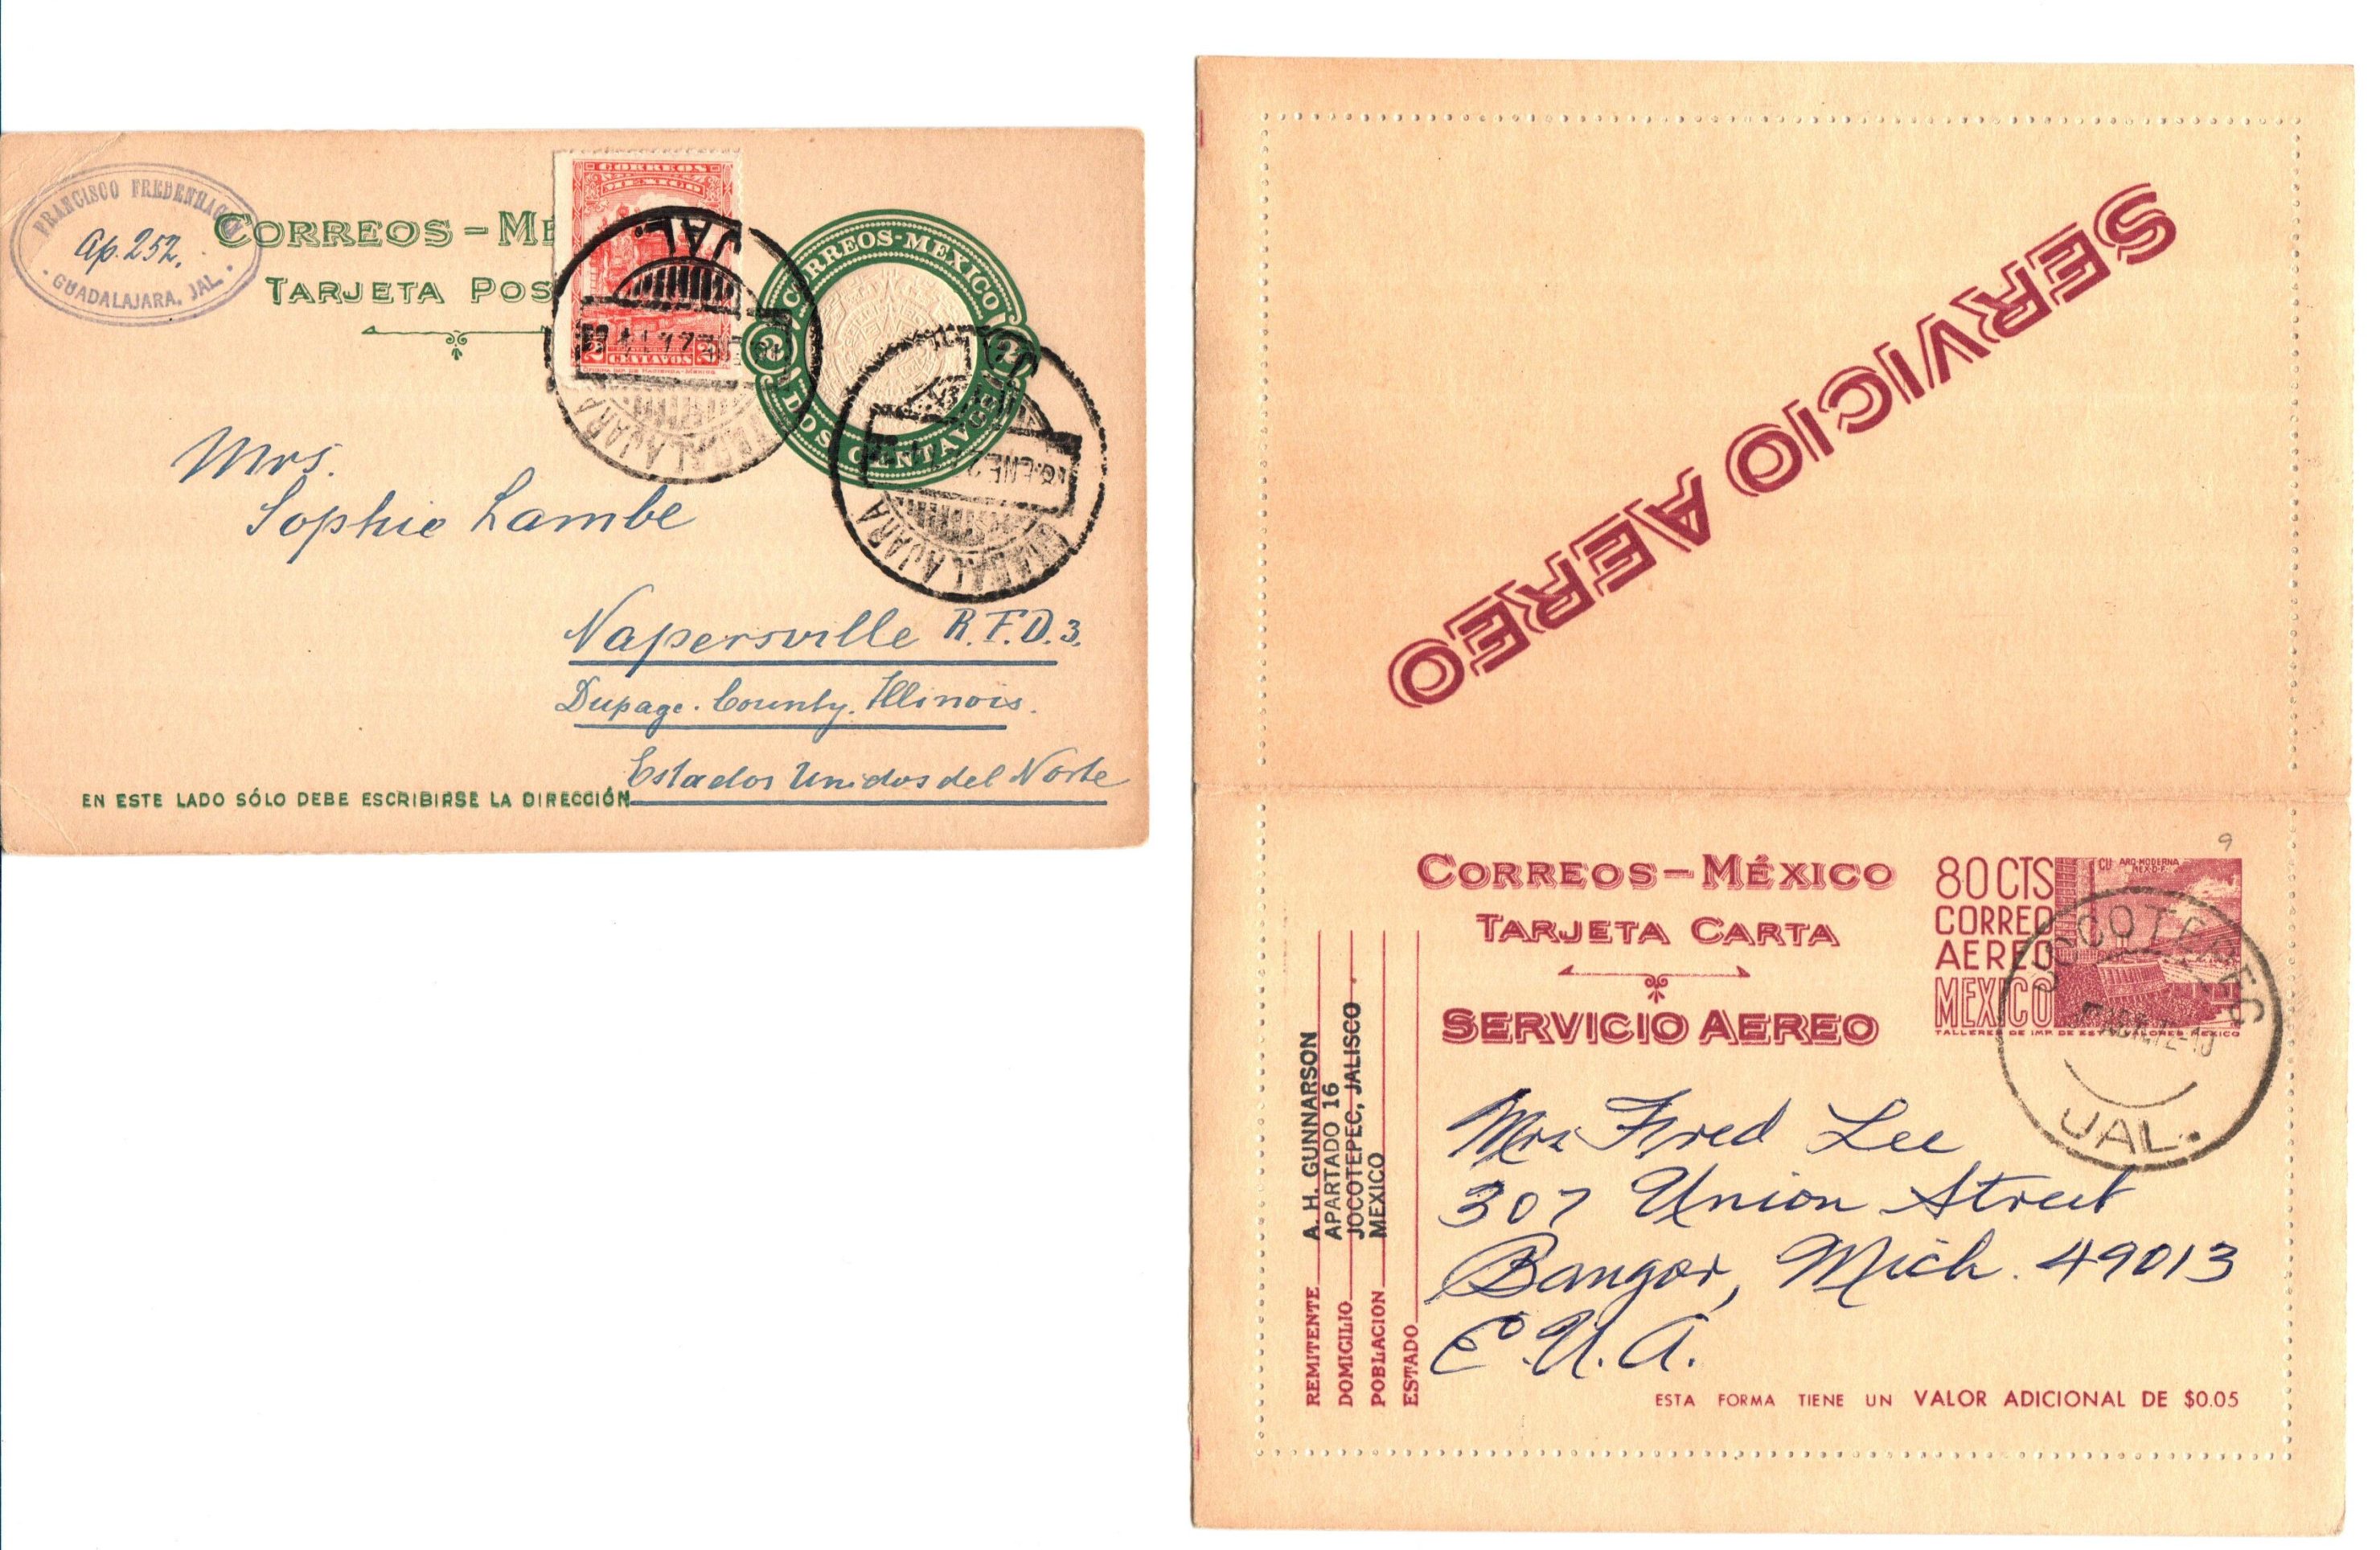 FRANCISCO FREDENHAGEN
Ap. 252.
GUADALAJARA, JAL.
CORREOS-MÉ
TARJETA POS
CORREOS
MEXICO
2 CENTAVOS 2
OFICINA IMP. DE HACIENDA-MEXICO
JAL.
GUADALAJARA
CORREOS-MEXICO
2 2
DOS CENTAVOS
18.ENE.2
GUADALAJARA
Mrs.
Sophie Lambe
Napersville R.F.D.3.
Dupage. County. Illinois.
Estados Unidos del Norte
EN ESTE LADO SÓLO DEBE ESCRIBIRSE LA DIRECCIÓN
SERVICIO AEREO
9
CORREOS-MÉXICO
TARJETA CARTA
SERVICIO AEREO
80 CTS
CORREO
AEREO
MEXICO
CU ARQ-MODERNA
MEX.D.F.
TALLERES DE IMP. DE EST. VALORES-MEXICO
JOCOTEPEC
JAL.
REMITENTE A. H. GUNNARSON
DOMICILIO APARTADO 16
POBLACION JOCOTEPEC, JALISCO
ESTADO MEXICO
Mrs Fred Lee
307 Union Street
Bangor, Mich. 49013
E.U.A.
ESTA FORMA TIENE UN VALOR ADICIONAL DE $0.05